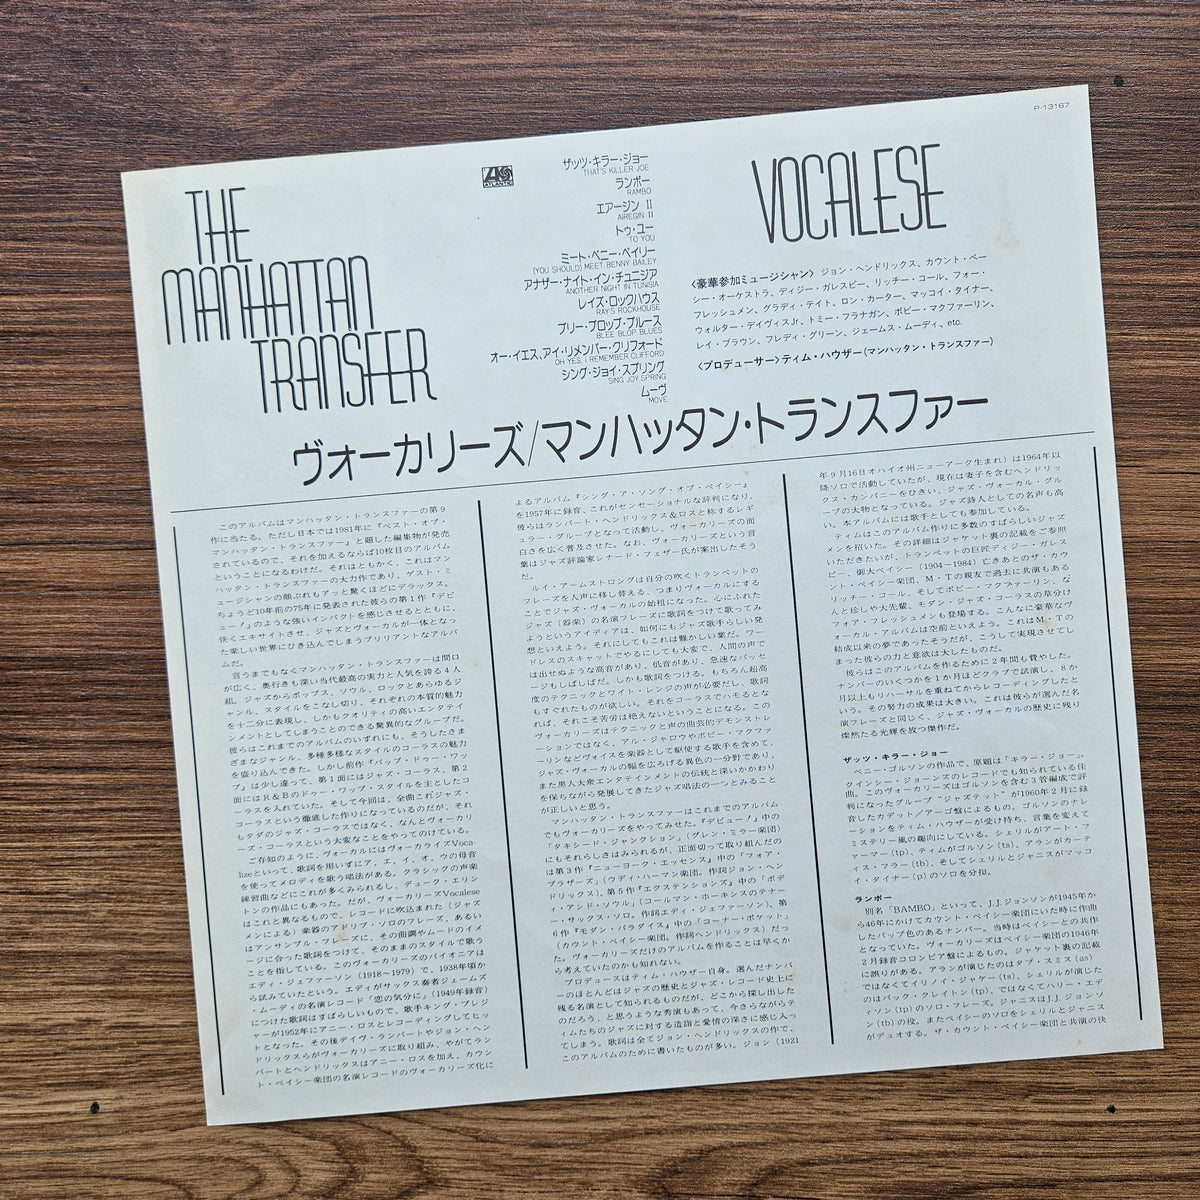 P-13167
THE
MANHATTAN
TRANSFER
ATLANTIC
ザッツ・キラー・ジョー
THAT'S KILLER JOE
ランボー
RAMBO
エアージン II
AIREGIN II
トゥ・ユー
TO YOU
ミート・ベニー・ベイリー
(YOU SHOULD) MEET BENNY BAILEY
アナザー・ナイト・イン・チュニジア
ANOTHER NIGHT IN TUNISIA
レイズ・ロックハウス
RAY'S ROCKHOUSE
ブリー・ブロップ・ブルース
BLEE BLOP BLUES
オー・イエス、アイ・リメンバー・クリフォード
OH YES, I REMEMBER CLIFFORD
シング・ジョイ・スプリング
SING JOY SPRING
ムーヴ
MOVE
VOCALESE
〈豪華参加ミュージシャン〉ジョン・ヘンドリックス、カウント・ベー
シー・オーケストラ、ディジー・ガレスピー、リッチー・コール、フォー・
フレッシュメン、グラディ・テイト、ロン・カーター、マッコイ・タイナー、
ウォルター・デイヴィスJr、トミー・フラナガン、ボビー・マクファーリン、
レイ・ブラウン、フレディ・グリーン、ジェームス・ムーディ、etc.
〈プロデューサー〉ティム・ハウザー(マンハッタン・トランスファー)
ヴォーカリーズ/マンハッタン・トランスファー
このアルバムはマンハッタン・トランスファーの第9
作に当たる。ただし日本では1981年に『ベスト・オブ・
マンハッタン・トランスファー』と題した編集物が発売
されているので、それを加えるならば10枚目のアルバム
ということになるわけだ。それはともかく、これはマン
ハッタン・トランスファーの大力作であり、ゲスト・ミ
ュージシャンの顔ぶれもアッと驚くほどにデラックス。
ちょうど10年前の75年に発表された彼らの第1作『デビ
ュー!』のような強いインパクトを感じさせるとともに、
快くエキサイトさせ、ジャズとヴォーカルが一体となっ
た楽しい世界にひき込んでしまうブリリアントなアルバ
ムだ。
言うまでもなくマンハッタン・トランスファーは間口
が広く、奥行きも深い当代最高の実力と人気を誇る4人
組。ジャズからポップス、ソウル、ロックとあらゆるジ
ャンル、スタイルをこなし切り、それぞれの本質的魅力
を十二分に表現し、しかもクオリティの高いエンタテイ
ンメントとしてしまうことのできる驚異的なグループだ。
彼らはこれまでのアルバムのいずれにも、そうしたさま
ざまなジャンル、多種多様なスタイルのコーラスの魅力
を盛り込んできた。しかし前作『バップ・ドゥー・ワッ
プ』は少し違って、第1面にはジャズ・コーラス、第2
面にはR&Bのドゥー・ワップ・スタイルを主としたコ
ーラスを入れていた。そして今回は、全曲これジャズ・
コーラスという徹底した作りになっているのだが、それ
もタダのジャズ・コーラスではなく、なんとヴォーカリ
ーズ・コーラスという大変なことをやってのけている。
ご存知のように、ヴォーカルにはヴォーカライズVoca-
lizeといって、歌詞を用いずにア、エ、イ、オ、ウの母音
を使ってメロディを歌う唱法がある。クラシックの声楽
練習曲などにこれが多くみられるし、デューク・エリン
トンの作品にもあった。だが、ヴォーカリーズVocalese
はこれと異なるもので、レコードに吹込まれた(ジャズ
メンによる)楽器のアドリブ・ソロのフレーズ、あるい
はアンサンブル・フレーズに、その曲調やムードのイメ
ージに合った歌詞をつけて、そのままのスタイルで歌う
ことを指している。このヴォーカリーズのパイオニアは
エディ・ジェファーソン(1918〜1979)で、1938年頃か
ら試みていたという。エディがサックス奏者ジェームズ
・ムーディの名演レコード「恋の気分に」(1949年録音)
につけた歌詞はすばらしいもので、歌手キング・プレジ
ャーが1952年にアニー・ロスとレコーディングしてヒッ
トとなった。その後デイヴ・ランバートやジョン・ヘン
ドリックスらがヴォーカリーズに取り組み、やがてラン
バートとヘンドリックスはアニー・ロスを加え、カウン
ト・ベイシー楽団の名演レコードのヴォーカリーズ化に
よるアルバム『シング・ア・ソング・オブ・ベイシー』
を1957年に録音、これがセンセーショナルな評判になり、
彼らはランバート・ヘンドリックス&ロスと称するレギ
ュラー・グループとなって活動し、ヴォーカリーズの面
白さを広く普及させた。なお、ヴォーカリーズという言
葉はジャズ評論家レナード・フェザー氏が案出したそう
だ。
ルイ・アームストロングは自分の吹くトランペットの
フレーズを人声に移し替える、つまりヴォーカルにする
ことでジャズ・ヴォーカルの始祖になった。心にふれた
ジャズ(器楽)の名演フレーズに歌詞をつけて歌ってみ
ようというアイディアは、如何にもジャズ歌手らしい発
想といえよう。それにしてもこれは難かしい業だ。ワー
ドレスのスキャットでやるにしても大変で、人間の声で
は出せぬような高音があり、低音があり、急速なパッセ
ージもしばしばだ。しかも歌詞をつける。もちろん超高
度のテクニックとワイト・レンジの声が必要だし、歌詞
もすぐれたものが欲しい。それをコーラスでハモるとな
れば、それこそ苦労は絶えないということになる。この
ヴォーカリーズはテクニックと声の曲芸的デモンストレ
ーションではなく、アル・ジャロウやボビー・マクファ
ーリンなどヴォイスを楽器として駆使する歌手を含めて、
ジャズ・ヴォーカルの幅を広げる異色の一分野であり、
また黒人大衆エンタテインメントの伝統と深いかかわり
を保ちながら発展してきたジャズ唱法の一つとみること
が正しいと思う。
マンハッタン・トランスファーはこれまでのアルバム
でもヴォーカリーズをやってみせた。『デビュー!』中の
「タキシード・ジャンクション」(グレン・ミラー楽団)
にもそれらしさはみられるが、正面切って取り組んだの
は第3作『ニューヨーク・エッセンス』中の「フォア・
ブラザーズ」(ウディ・ハーマン楽団。作詞ジョン・ヘン
ドリックス)、第5作『エクステンションズ』中の「ボデ
ィ・アンド・ソウル」(コールマン・ホーキンスのテナー
・サックス・ソロ。作詞エディ・ジェファーソン)、第
6作『モダン・パラダイス』中の「コーナー・ポケット」
(カウント・ベイシー楽団。作詞ヘンドリックス)だっ
た。ヴォーカリーズだけのアルバムを作ることは早くか
ら考えていたのかも知れない。
プロデュースはティム・ハウザー自身。選んだナンバ
ーのほとんどはジャズの歴史とジャズ・レコード史上に
残る名演として知られるものだが、どこから探し出した
のだろう、と思うような秀演もあって、今さらながらテ
ィムたちのジャズに対する造詣と愛情の深さに感じ入っ
てしまう。歌詞は全てジョン・ヘンドリックスの作で、
このアルバムのために書いたものが多い。ジョン(1921
年9月16日オハイオ州ニューアーク生まれ)は1964年以
降ソロで活動していたが、現在は妻子を含むヘンドリッ
クス・カンパニーをひきい、ジャズ・ヴォーカル・グル
ープの大物となっている。ジャズ詩人としての名声も高
い。本アルバムには歌手としても参加している。
ティムはこのアルバム作りに多数のすばらしいジャズ
メンを招いた。その詳細はジャケット裏の記載をご参照
いただきたいが、トランペットの巨匠ディジー・ガレス
ピー、御大ベイシー(1904〜1984)亡きあとのザ・カウ
ント・ベイシー楽団、M・Tの親友で過去に共演もある
リッチー・コール、そしてボビー・マクファーリン、な
んと珍しや大先輩、モダン・ジャズ・コーラスの草分け
フォア・フレッシュメンも登場する。こんなに豪華なヴ
ォーカル・アルバムは空前といえよう。これはM・Tの
結成以来の夢であったそうだが、こうして実現させてし
まった彼らの力と意欲は大したものだ。
彼らはこのアルバムを作るために2年間も費やした。
ナンバーのいくつかを1か月ほどクラブで試演し、8か
月以上もリハーサルを重ねてからレコーディングしたと
いう。その努力の成果は大きい。これは彼らが選んだ名
演フレーズと同じく、ジャズ・ヴォーカルの歴史に残り
燦然たる光輝を放つ傑作だ。
ザッツ・キラー・ジョー
ベニー・ゴルソンの作品で、原題は「キラー・ジョー」。
クインシー・ジョーンズのレコードでも知られている佳
曲。このヴォーカリーズはゴルソンを含む3管編成で評
判になったグループ“ジャズテット”が1960年2月に録
音したカデット/アーゴ盤によるもの。ゴルソンのナレ
ーションをティム・ハウザーが受け持ち、言葉を変えて
ミステリー風の趣向にしている。シェリルがアート・フ
ァーマー(tp)、ティムがゴルソン(ts)、アランがカーテ
ィス・フラー(tb)、そしてシェリルとジャニスがマッコ
イ・タイナー(p)のソロを分担。
ランボー
別名「BAMBO」といって、J.J.ジョンソンが1945年か
ら46年にかけてカウント・ベイシー楽団にいた時に作曲
したバップ色のあるナンバー。当時はベイシーとの共作
となっていた。ヴォーカリーズはベイシー楽団の1946年
2月録音コロンビア盤によるもの。ジャケット裏の記載
に誤りがある。アランが演じたのはタブ・スミス(as)
ではなくてイリノイ・ジャケー(ts)、シェリルが演じた
のはバック・クレイトン(tp)、ではなくてハリー・エデ
ィソン(tp)のソロ・フレーズ。ジャニスはJ.J.ジョンソ
ン(tb)の役。またベイシーのソロをシェリルとジャニス
がデュオする。ザ・カウント・ベイシー楽団と共演の快